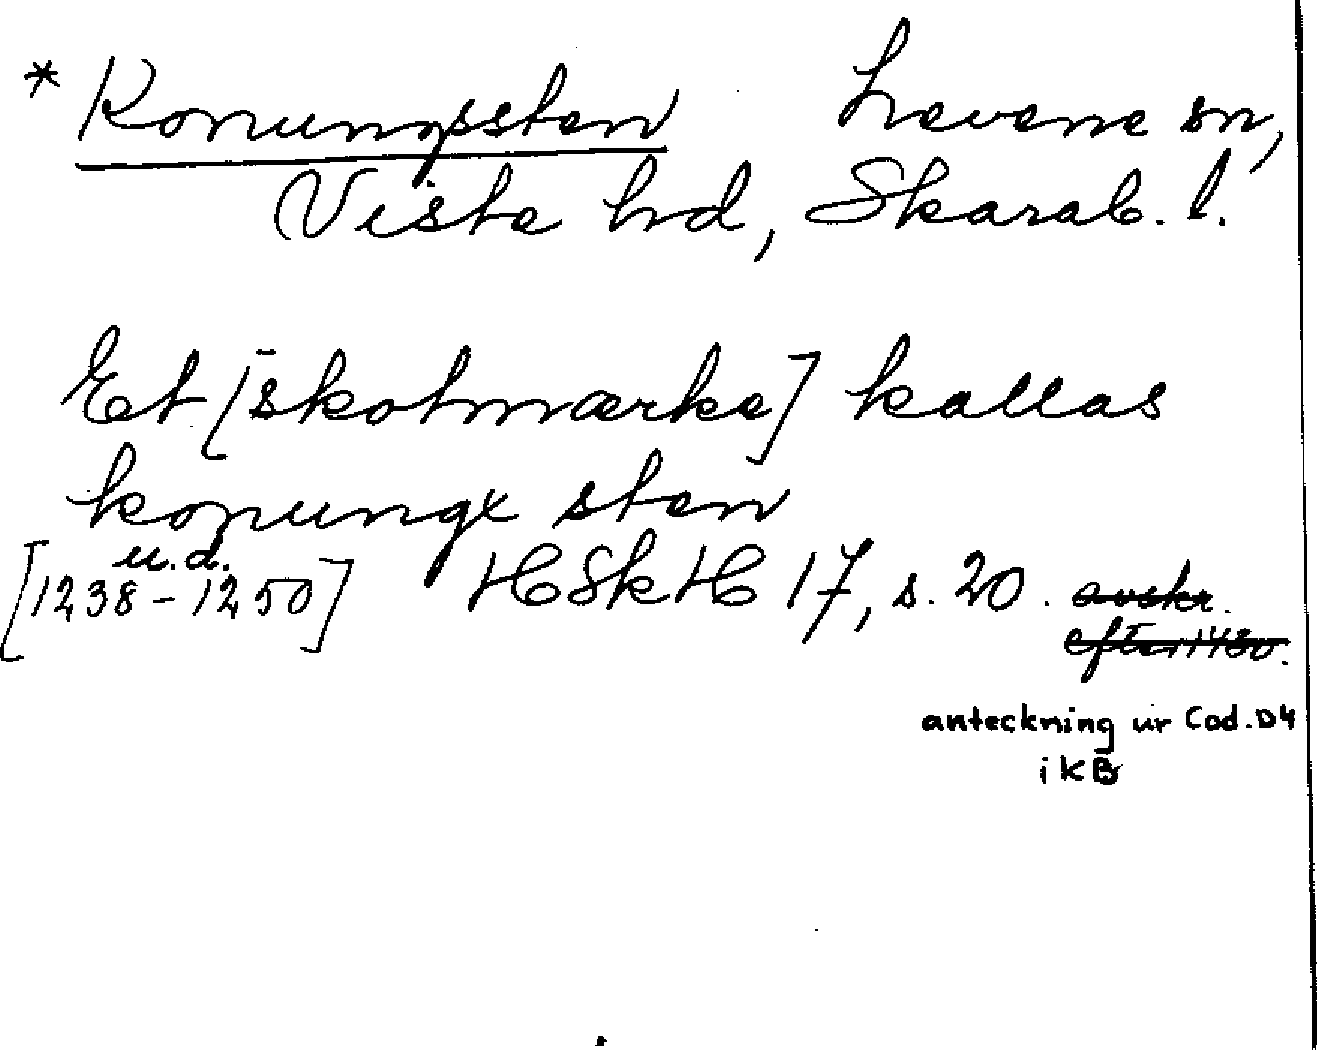 * Konungssten Levene sn,
Viste hd, Skarab. l.
Et [skotmærke] kallas
konungx sten
u.d.
[1238-1250] HSkH 17, s. 20. avskr.
efter 1430.
anteckning ur Cod. D4
i KB